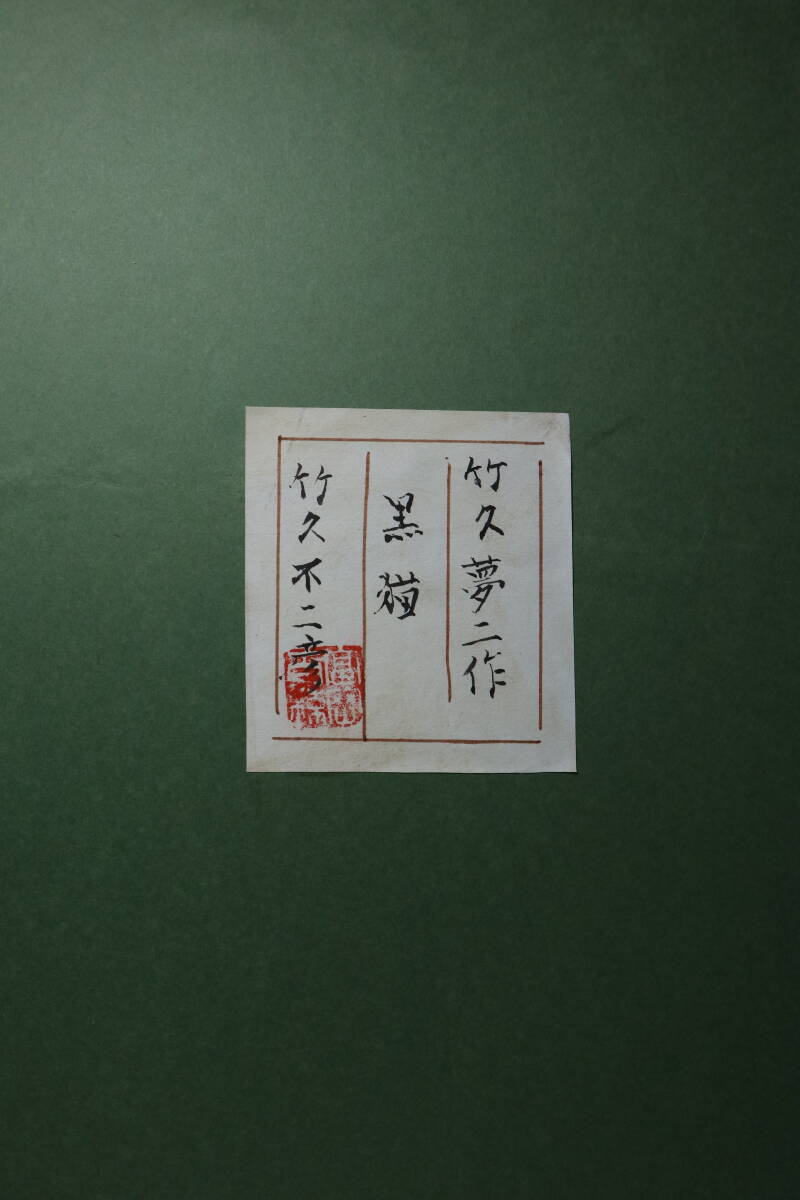 竹久夢二作
黒猫
竹久不二彦